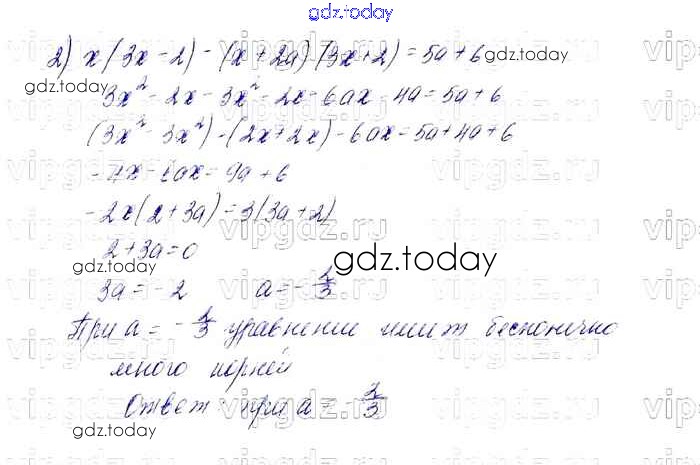 gdz.today
2) x(3x-2) - (x+2a)(3x+2) = 5a+6
gdz.today
3x² - 2x - 3x² - 2x - 6ax - 4a = 5a+6
(3x² - 3x²) - (2x+2x) - 6ax = 5a+4a+6
-4x - 6ax = 9a+6
-2x(2+3a) = 3(3a+2)
gdz.today
2+3a=0
gdz.today
3a = -2 a = -2/3
При a = -2/3 уравнение имеет бесконечно
много корней
Ответ при a = -2/3
gdz.today
vipgdz.ru